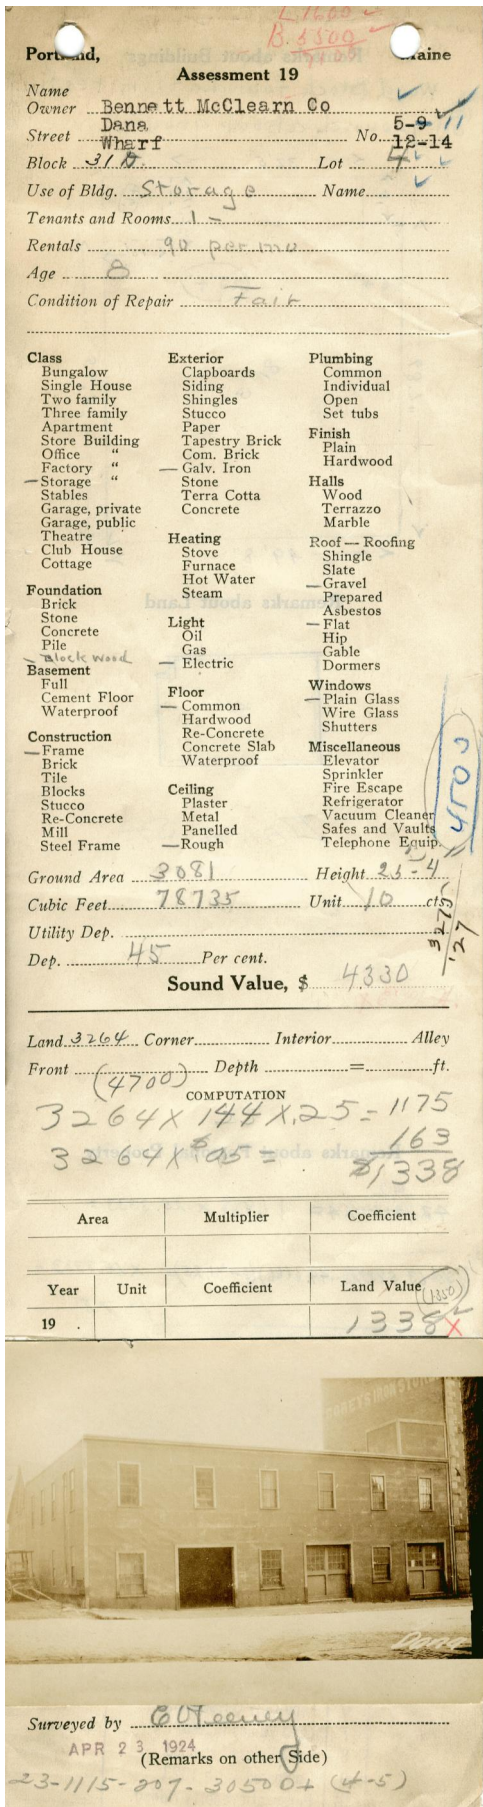 L 1600
B. 5500
Portland, Maine
Assessment 19
Name
Owner Bennett McClearn Co
Dana 5-9 11
Street Wharf No. 12-14
Block 31 D Lot 4
Use of Bldg. Storage Name
Tenants and Rooms 1 -
Rentals 90 per mo
Age 8
Condition of Repair Fair
Class
Bungalow
Single House
Two family
Three family
Apartment
Store Building
Office "
Factory "
— Storage "
Stables
Garage, private
Garage, public
Theatre
Club House
Cottage
Foundation
Brick
Stone
Concrete
Pile
— Block wood
Basement
Full
Cement Floor
Waterproof
Construction
— Frame
Brick
Tile
Blocks
Stucco
Re-Concrete
Mill
Steel Frame
Exterior
Clapboards
Siding
Shingles
Stucco
Paper
Tapestry Brick
Com. Brick
— Galv. Iron
Stone
Terra Cotta
Concrete
Heating
Stove
Furnace
Hot Water
Steam
Light
Oil
Gas
— Electric
Floor
— Common
Hardwood
Re-Concrete
Concrete Slab
Waterproof
Ceiling
Plaster
Metal
Panelled
— Rough
Plumbing
Common
Individual
Open
Set tubs
Finish
Plain
Hardwood
Halls
Wood
Terrazzo
Marble
Roof — Roofing
Shingle
Slate
— Gravel
Prepared
Asbestos
— Flat
Hip
Gable
Dormers
Windows
— Plain Glass
Wire Glass
Shutters
Miscellaneous
Elevator
Sprinkler
Fire Escape
Refrigerator
Vacuum Cleaner
Safes and Vaults
Telephone Equip.
4500
Ground Area 3081 Height 25-4"
Cubic Feet 78735 Unit 10 cts.
3275
'27
Utility Dep.
Dep. 45 Per cent.
Sound Value, $ 4330
Land 3264 Corner Interior Alley
Front Depth = ft.
(4700)
COMPUTATION
3264 X 144 X .25 = 1175
163
3264 X $05 = $1338
Area Multiplier Coefficient
Year Unit Coefficient Land Value
(1350)
19 . 1338 X
Dana
Surveyed by
APR 23 1924
(Remarks on other Side)
23-1115-207-30500+ (4-5)